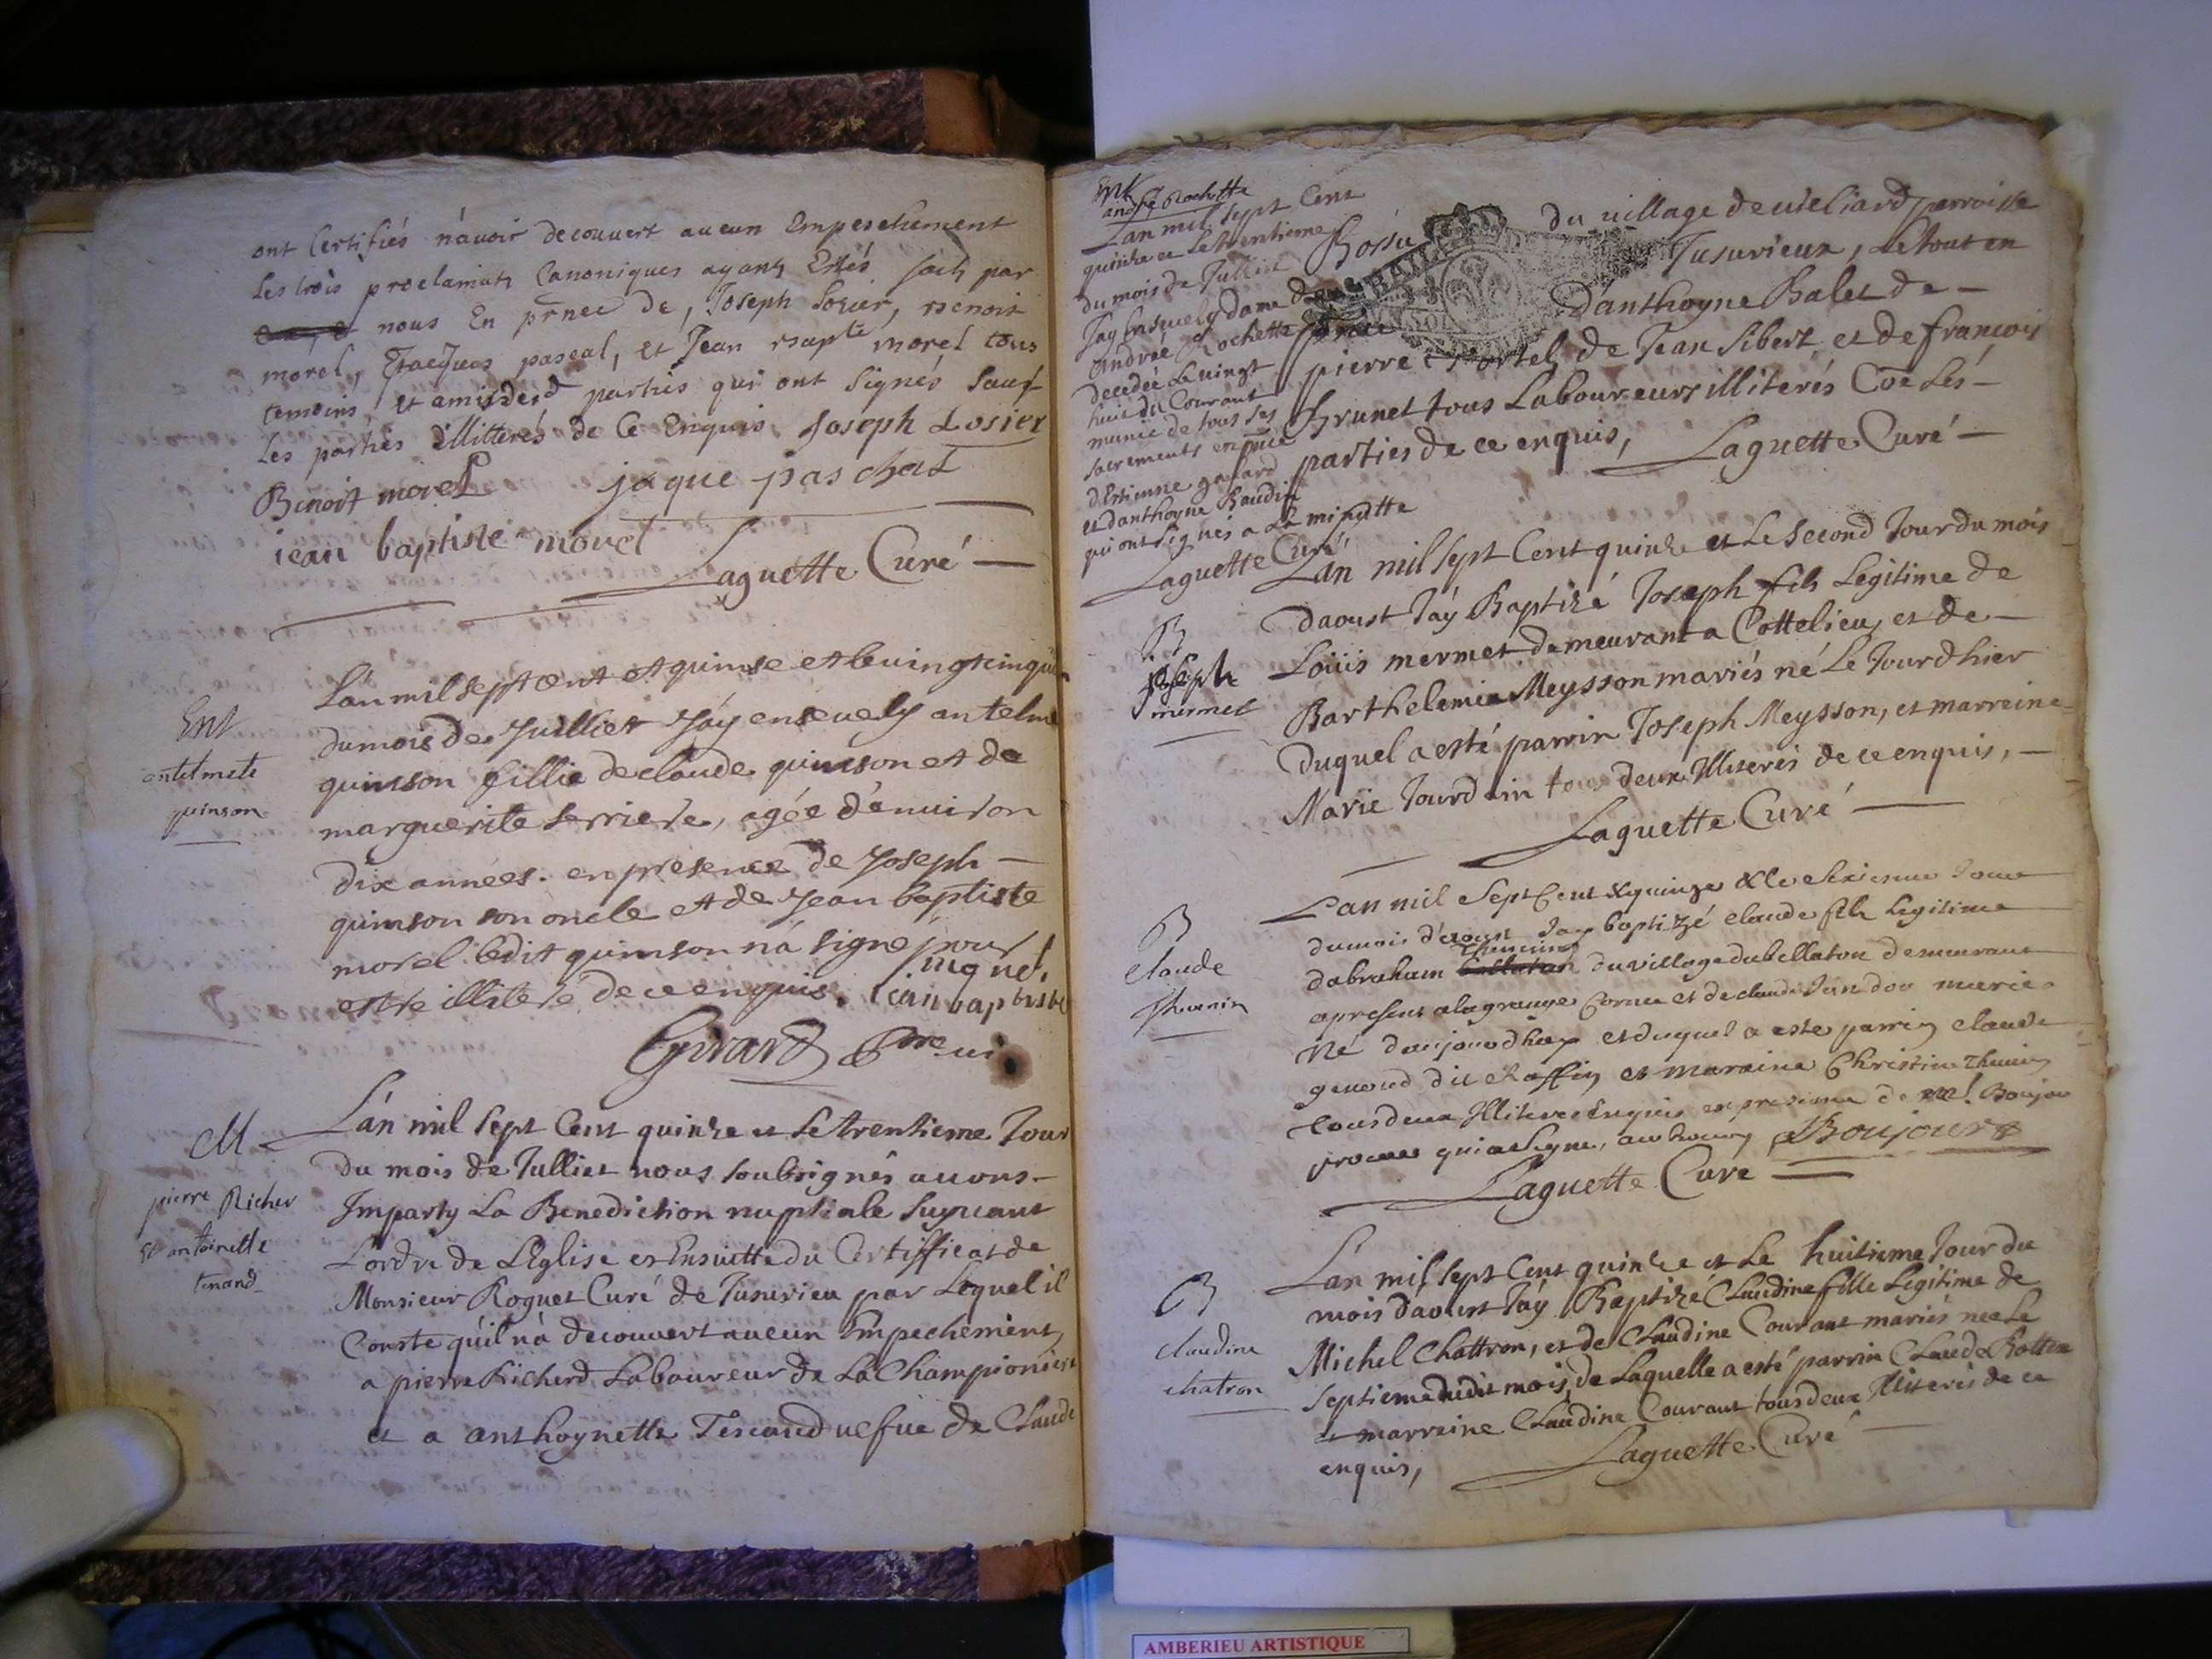 ont Certifiés n'auoir decouvert aucun Empeschement
Les trois proclamats Canoniques ayants Estés faits par
nous En prnce de, Joseph Losier, Benoit
morel, Jacques pascal, et Jean bapte morel tous
temoins et amis desd parties qui ont signés sauf
Les parties illitterés de Ce Enquis Joseph Losier
Benoit morel jaque paschal
iean baptiste morel
Laguette Curé
Ent
antelmete
quinson
L'an mil sept cent et quinse et le uingt cinquie
du mois de Juillier J'ay enseuely antelme
quinson fillie de claude quinson et de
marguerite serriere, agée d'enuiron
dix années. en presence de Joseph
quinson son oncle et de Jean baptiste
morel ledit quinson n'a signe pour
estre illiteré de ce enquis. iean baptiste
Girard
M
pierre Richer
Et antoinette
tenand
L'an mil sept Cent quinze et Le trentieme Jour
du mois de Julliet nous soubsignés auons
Imparty La Benediction nuptiale suyuant
L'ordre de L'Eglise et Ensuitte du Certifficat de
Monsieur Roguet Curé de Jusurieu par Lequel il
Conste qu'il n'a decouvert aucun Empechement
a pierre Richerd Laboureur de La Championiere
et a anthoynette Tenand uefue de Claude
Ent
andré Rochette
L'an mil sept Cent
quinze et Le trentieme
du mois de Julliet
J'ay Ensevely dame
andrée Rochette
decedée Le uingt
huit du Courant
munie de tous ses
sacrements en prnce
d'Estienne gagard
et d'anthoyne Baudin
qui ont signés a La minutte
Laguette Curé
Bossu du uillage de uieliard parroisse
Jusurieux, Le tout en
prnce d'anthoyne Balet de
pierre Mortel, de Jean Sibert et de françois
Brunet tous Laboureurs illiterés Coe Les
parties de ce enquis, Laguette Curé
B
Joseph
mermet
L'an mil sept Cent quinze et Le second Jour du mois
d'aoust J'ay Baptizé Joseph fils Legitime de
Loüis mermet demeurant a Cottelieu, et de
Barthelemie Meysson mariés né Le Jourd'hier
Duquel a esté parrin Joseph Meysson, et marreine
Marie Jourdain tous deux Illiterés de ce enquis,
Laguette Curé
B
Claude
Thevenin
L'an mil Sept Cent & quinze & le sixiesme Jour
du mois d'aoust J'ay baptizé claude fils Legitime
d'abraham Thevenin du village du bellaton demeurant
a present a la grange Cornu et de claude Jandou marie
Né d'aujourd'huy et duquel a este parrin claude
genoud dit Raffin et maraine Christine Thevenin
tous deux Illiteres Enquis en presence de me Boujour
qui a signe, Boujour
Laguette Curé
B
Claudine
chatron
L'an mil sept Cent quinze et Le huitieme Jour du
mois d'aoust J'ay Baptizé Claudine fille Legitime de
Michel Chattron, et de Claudine Courant mariés née Le
septieme dudit mois, de Laquelle a esté parrin Claude
et marreine Claudine Courant tous deux Illiterés de ce
enquis, Laguette Curé
AMBERIEU ARTISTIQUE